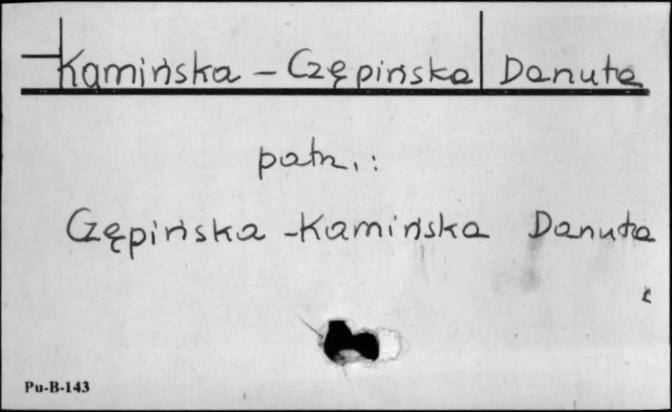 Kamińska - Czępińska Danuta
patrz.:
Czępińska - Kamińska Danuta
Pu-B-143